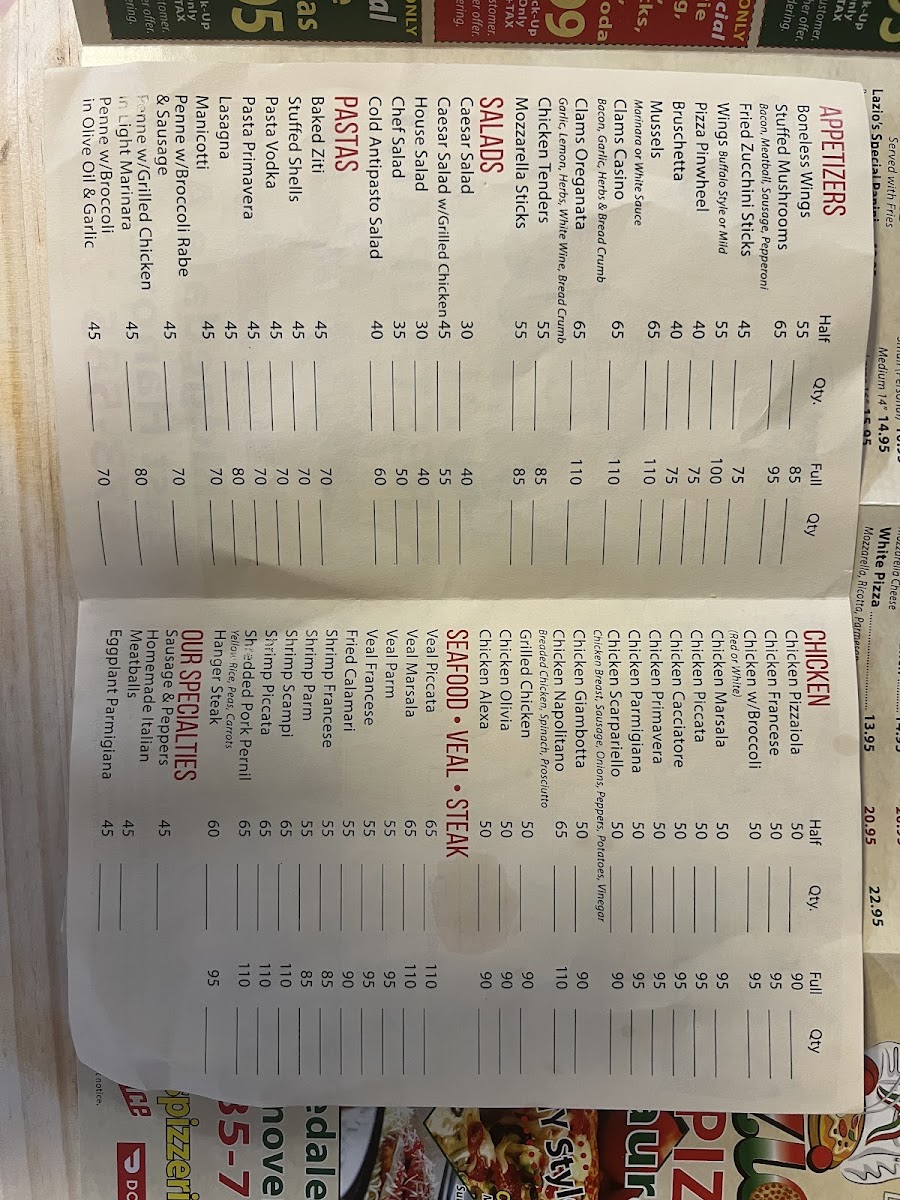 Served with Fries
Lazio's Special Panini
Medium 14" 14.95
Mozzarella Cheese
White Pizza 13.95 20.95 22.95
Mozzarella, Ricotta, Parmesan
APPETIZERS Half Qty. Full Qty
Boneless Wings 55 85
Stuffed Mushrooms 65 95
Bacon, Meatball, Sausage, Pepperoni
Fried Zucchini Sticks 45 75
Wings Buffalo Style or Mild 55 100
Pizza Pinwheel 40 75
Bruschetta 40 75
Mussels 65 110
Marinara or White Sauce
Clams Casino 65 110
Bacon, Garlic, Herbs & Bread Crumb
Clams Oreganata 65 110
Garlic, Lemon, Herbs, White Wine, Bread Crumb
Chicken Tenders 55 85
Mozzarella Sticks 55 85
SALADS
Caesar Salad 30 40
Caesar Salad w/Grilled Chicken 45 55
House Salad 30 40
Chef Salad 35 50
Cold Antipasto Salad 40 60
PASTAS
Baked Ziti 45 70
Stuffed Shells 45 70
Pasta Vodka 45 70
Pasta Primavera 45 70
Lasagna 45 80
Manicotti 45 70
Penne w/Broccoli Rabe
& Sausage 45 70
Penne w/Grilled Chicken
in Light Marinara 45 80
Penne w/Broccoli
in Olive Oil & Garlic 45 70
CHICKEN Half Qty. Full Qty
Chicken Pizzaiola 50 90
Chicken Francese 50 95
Chicken w/Broccoli 50 95
(Red or White)
Chicken Marsala 50 95
Chicken Piccata 50 95
Chicken Cacciatore 50 95
Chicken Primavera 50 95
Chicken Parmigiana 50 95
Chicken Scarpariello 50 90
Chicken Breast, Sausage, Onions, Peppers, Potatoes, Vinegar
Chicken Giambotta 50 90
Chicken Napolitano 65 110
Breaded Chicken, Spinach, Prosciutto
Grilled Chicken 50 90
Chicken Olivia 50 90
Chicken Alexa 50 90
SEAFOOD • VEAL • STEAK
Veal Piccata 65 110
Veal Marsala 65 110
Veal Parm 55 95
Veal Francese 55 95
Fried Calamari 55 90
Shrimp Francese 55 85
Shrimp Parm 55 85
Shrimp Scampi 65 110
Shrimp Piccata 65 110
Shredded Pork Pernil 65 110
Yellow Rice, Peas, Carrots
Hanger Steak 60 95
OUR SPECIALTIES
Sausage & Peppers 45
Homemade Italian
Meatballs 45
Eggplant Parmigiana 45
notice.